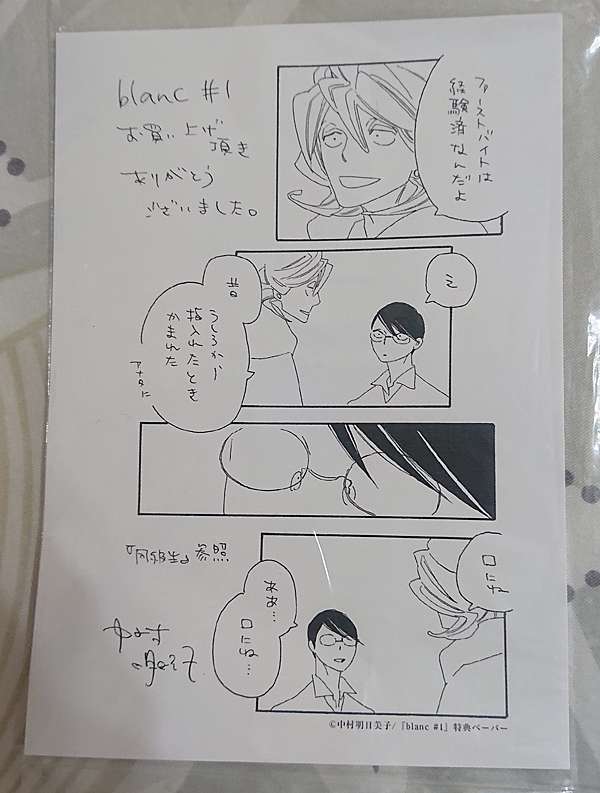 blanc #1
お買い上げ
頂き
ありがとう
ございました。
ファーストバイトは
経験済なんだよ
え
昔
うしろから
指入れたとき
かまれた
アナタに
口にね
ああ…
口にね…
『同級生』参照
©中村明日美子/『blanc #1』特典ペーパー